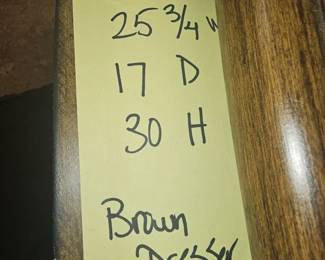 25 3/4 W
17 D
30 H
Brown
Dresser